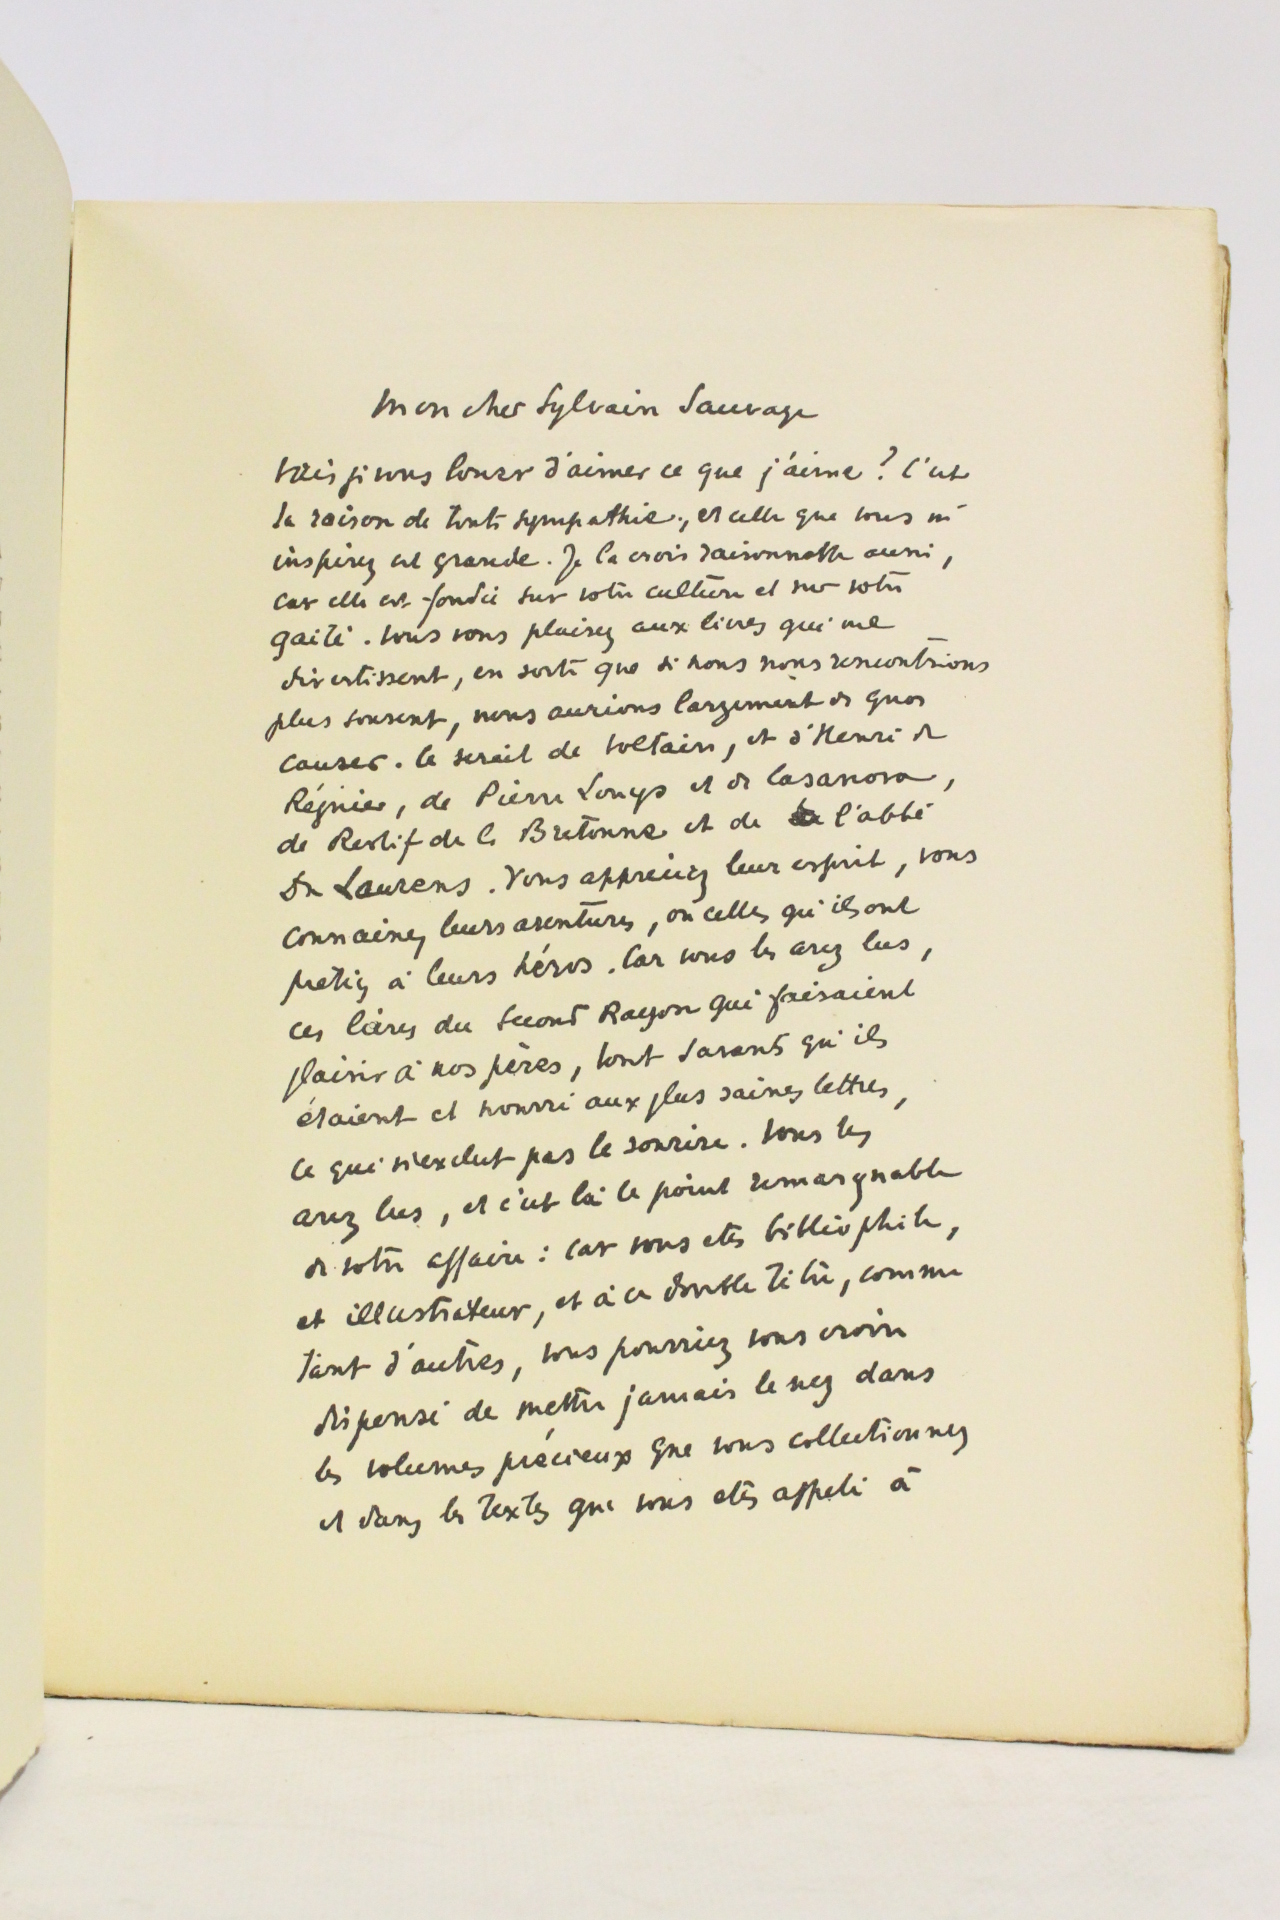 Mon cher Sylvain Sauvage
Vais je vous louer d'aimer ce que j'aime ? C'est
la raison de toute sympathie, et celle que vous m'
inspirez est grande. Je la crois raisonnable aussi,
car elle est fondée sur votre culture et sur votre
gaité. Vous vous plaisez aux livres qui me
divertissent, en sorte que si nous nous rencontrions
plus souvent, nous aurions largement de quoi
causer. Ce serait de Voltaire, et d'Henri de
Régnier, de Pierre Louys et de Casanova,
de Restif de la Bretonne et de l'abbé
Du Laurens. Vous appréciez leur esprit, vous
connaissez leurs aventures, ou celles qu'ils ont
pretées à leurs héros. Car vous les avez lus,
ces livres du Second Rayon qui faisaient
plaisir à nos pères, tout savants qu'ils
étaient et nourri aux plus saines lettres,
ce qui n'exclut pas le sourire. Vous les
avez lus, et c'est là le point remarquable
de votre affaire : car vous etes bibliophile,
et illustrateur, et à ce double titre, comme
tant d'autres, vous pourriez vous croire
dispensé de mettre jamais le nez dans
les volumes précieux que vous collectionnez
et dans les textes que vous etes appelé à